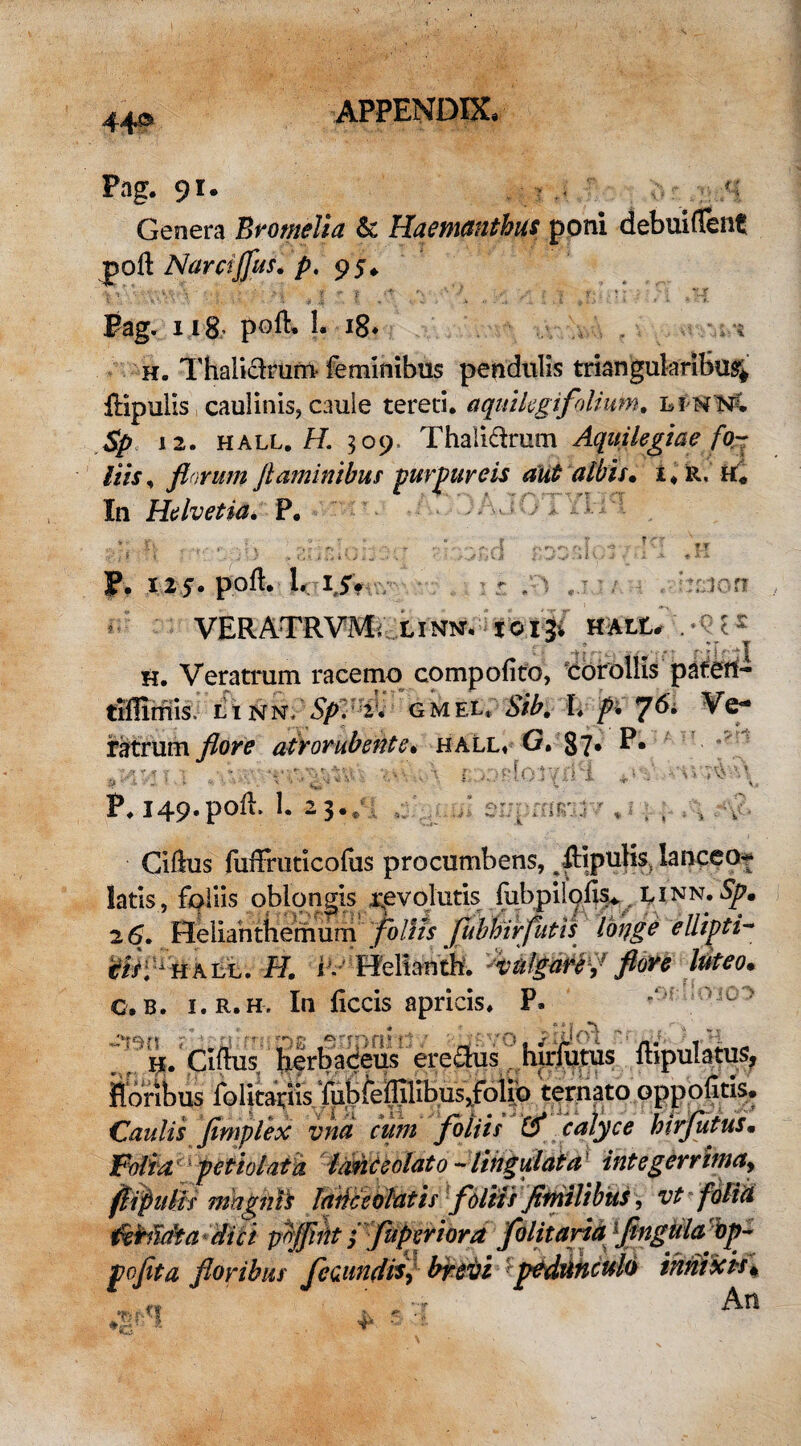 440 APPENDIX.
Pag. 91.
Genera Bromelia & Haemanthus poni debuiſſent
poſt Narciſſus. p. 95.
Pag. 118. poſt. l. 18.
H. Thalictrum feminibus pendulis triangularibus,
ſtipulis caulinis, caule tereti. aquilegifolium. LINN.
Sp 12. HALL. H. 309. Thalictrum Aquilegiae fo-
liis, florum ſtaminibus purpureis aut albis. I. R. H.
In Helvetia. P.
P. 125. poſt. l. 15.
VERATRVM. LINN. 1013. HALL.
H. Veratrum racemo compoſito, corollis paten-
tiſſimis. LINN. Sp. 2. GMEL. Sib. I. p. 76. Ve-
ratrum flore atrorubente. HALL. G. 87. P.
P. 149. poſt. l. 23.
Ciſtus ſuffruticoſus procumbens, ſtipulis lanceo-
latis, foliis oblongis revolutis ſubpiloſis. LINN. Sp.
26. Helianthemum foliis ſubhirſutis longe ellipti-
cis. HALL. H. 1. Helianth. vulgare, flore luteo.
C. B. I. R. H. In ſiccis apricis. P.
H. Ciſtus herbaceus erectus hirſutus ſtipulatus,
floribus ſolitariis ſubſeſſilibus, folio ternato oppoſitis.
Caulis ſimplex vna cum foliis & calyce hirſutus.
Folia petiolata lanceolato-lingulata integerrima,
ſtipulis magnis lanceolatis foliis ſimilibus, vt folia
ternata dici poſſint; ſuperiora ſolitaria ſingula op-
poſita floribus ſecundis, brevi pedunculo innixis.
An